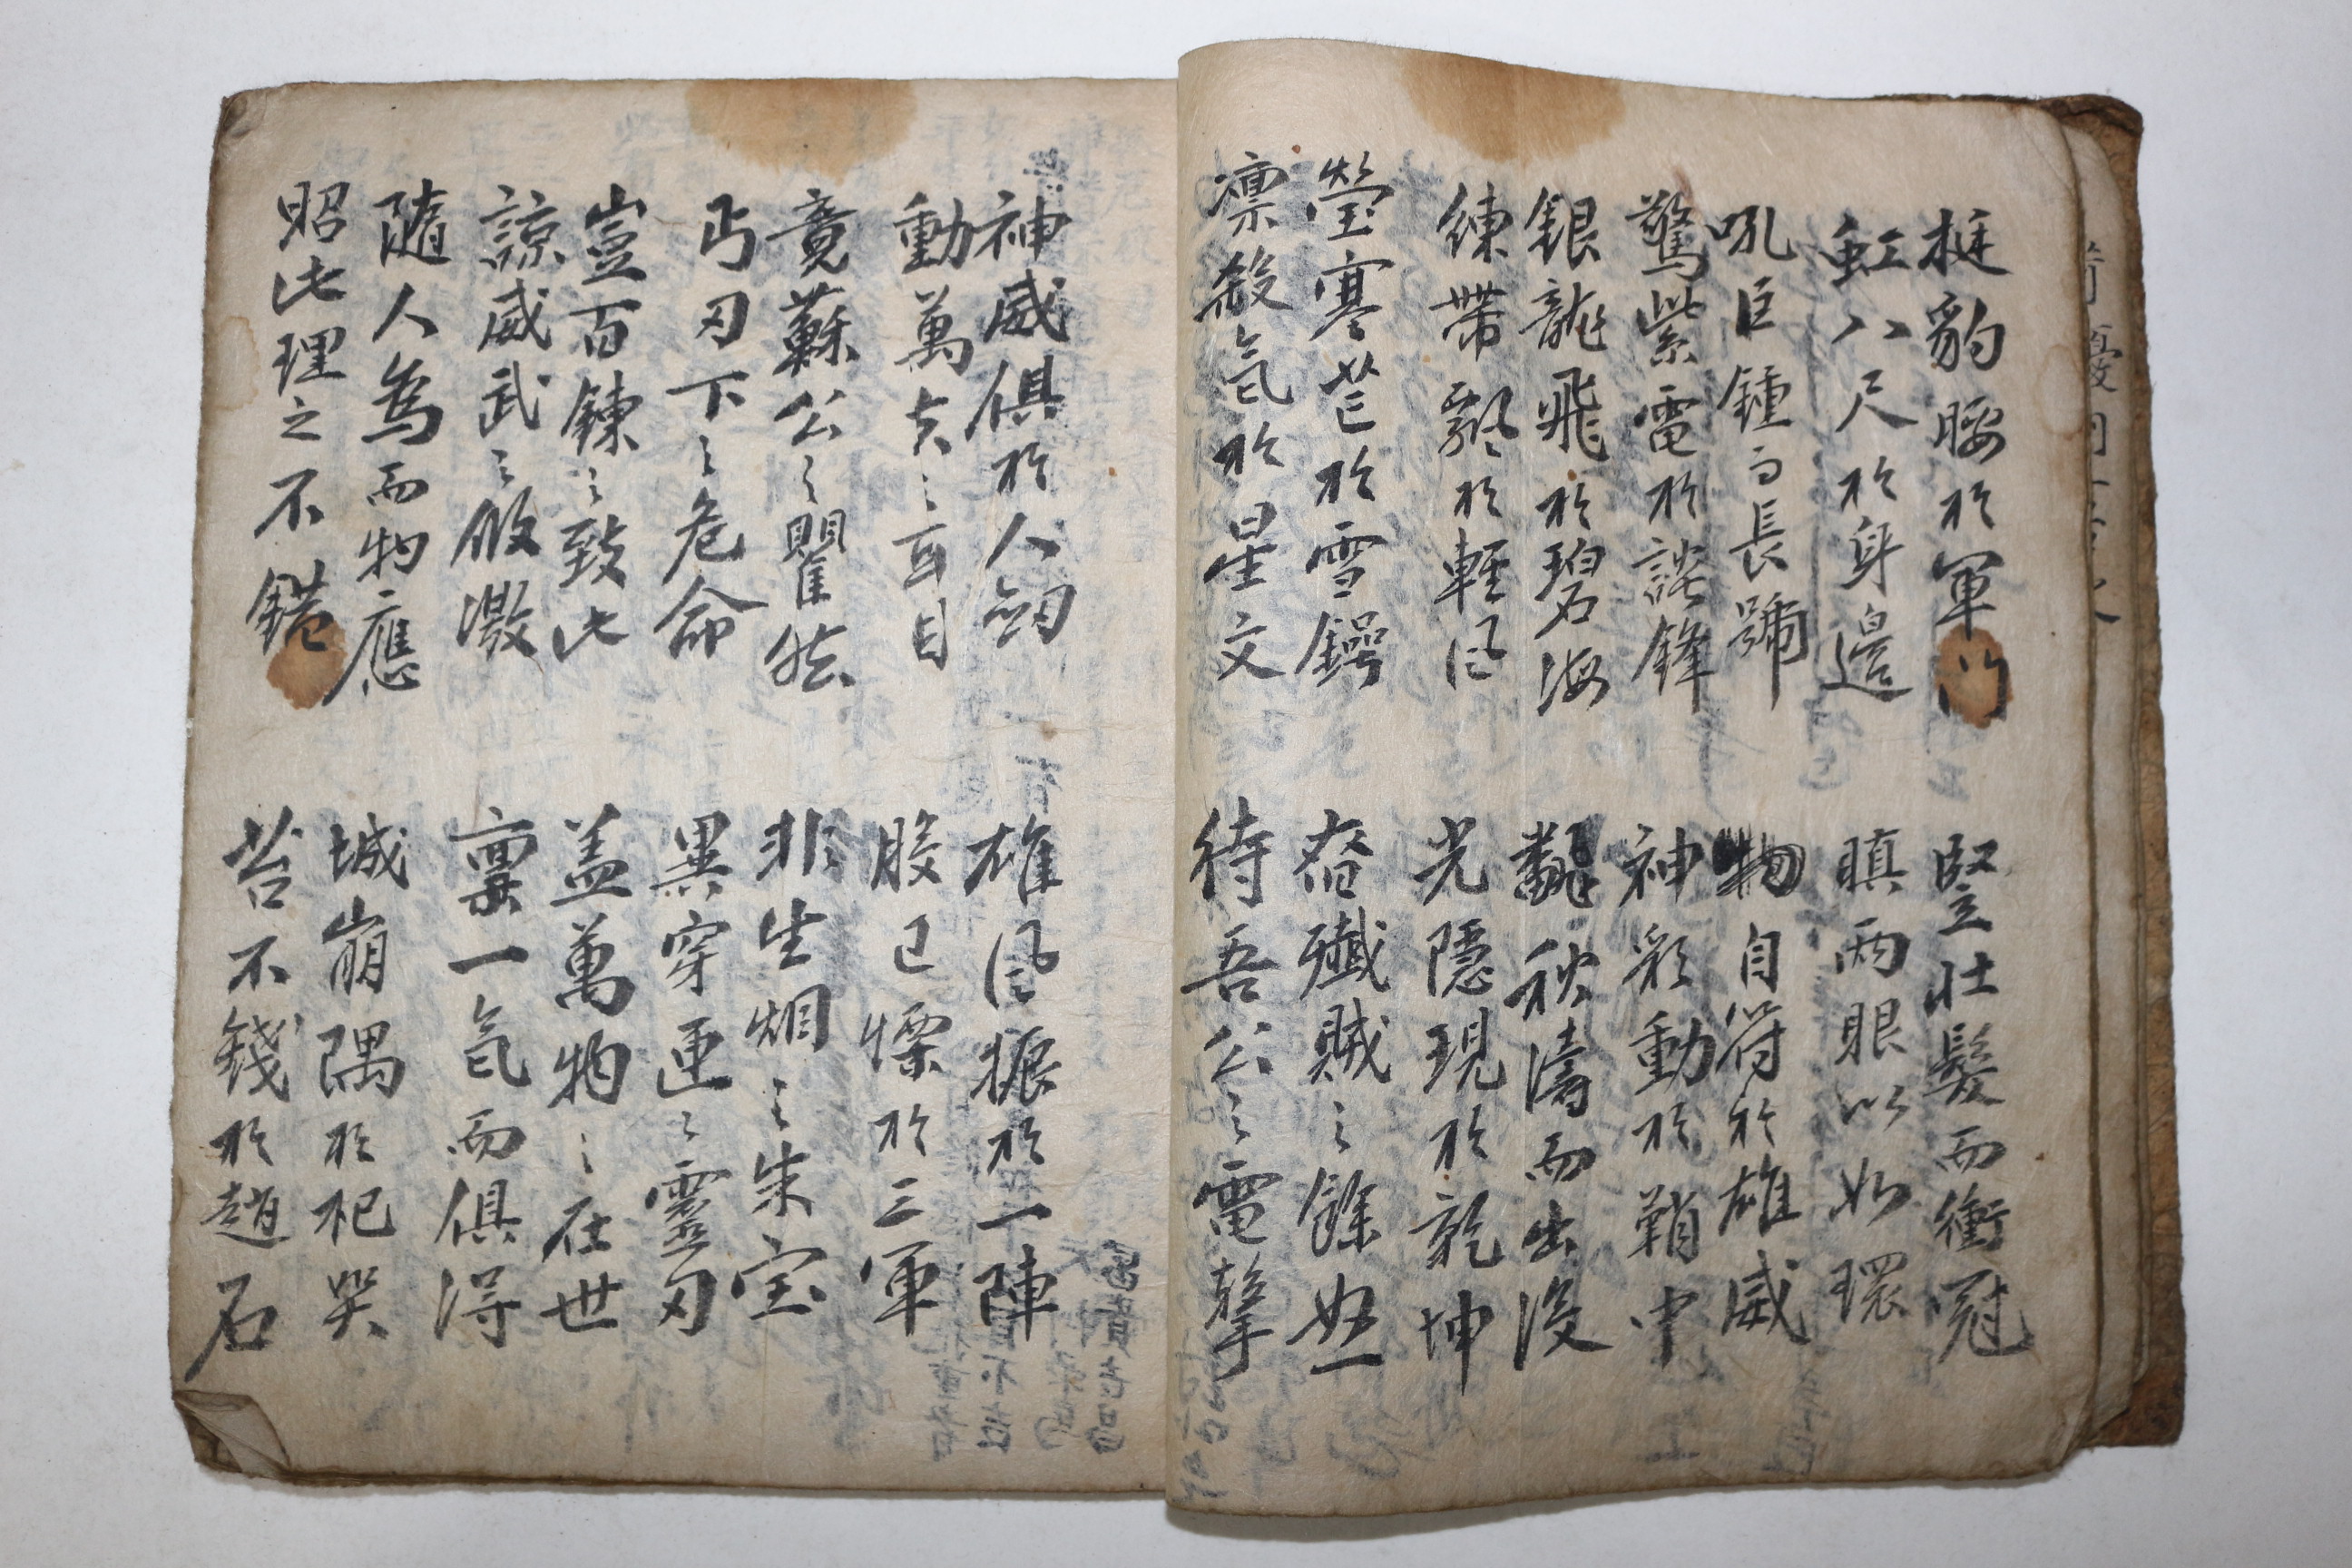 挺豹腰於軍門
竪壮髮而衝冠
虹八尺於身邊
瞋兩眼以如環
吼巨鍾而長號
物自符於雄威
驚紫電於談鋒
神彩動於鞘中
銀龍飛於碧海
翻秋濤而出沒
練帶飄於輕風
光隱現於乾坤
瑩寒芒於雪鍔
殲賊之餘怒
凛殺氣於星文
待吾公之電擊
神威俱於人釼
雄風振於一陣
動萬夫之耳目
股已慄於三軍
竟蘇公之矍然
非生烟之朱宝
丐刃下之危命
異穿匣之靈刃
豈百鍊之致此
盖萬物之在世
諒威武之攸激
禀一氣而俱淂
隨人為而物應
城崩隅於杞哭
昭此理之不錯
苔不錢於趙石